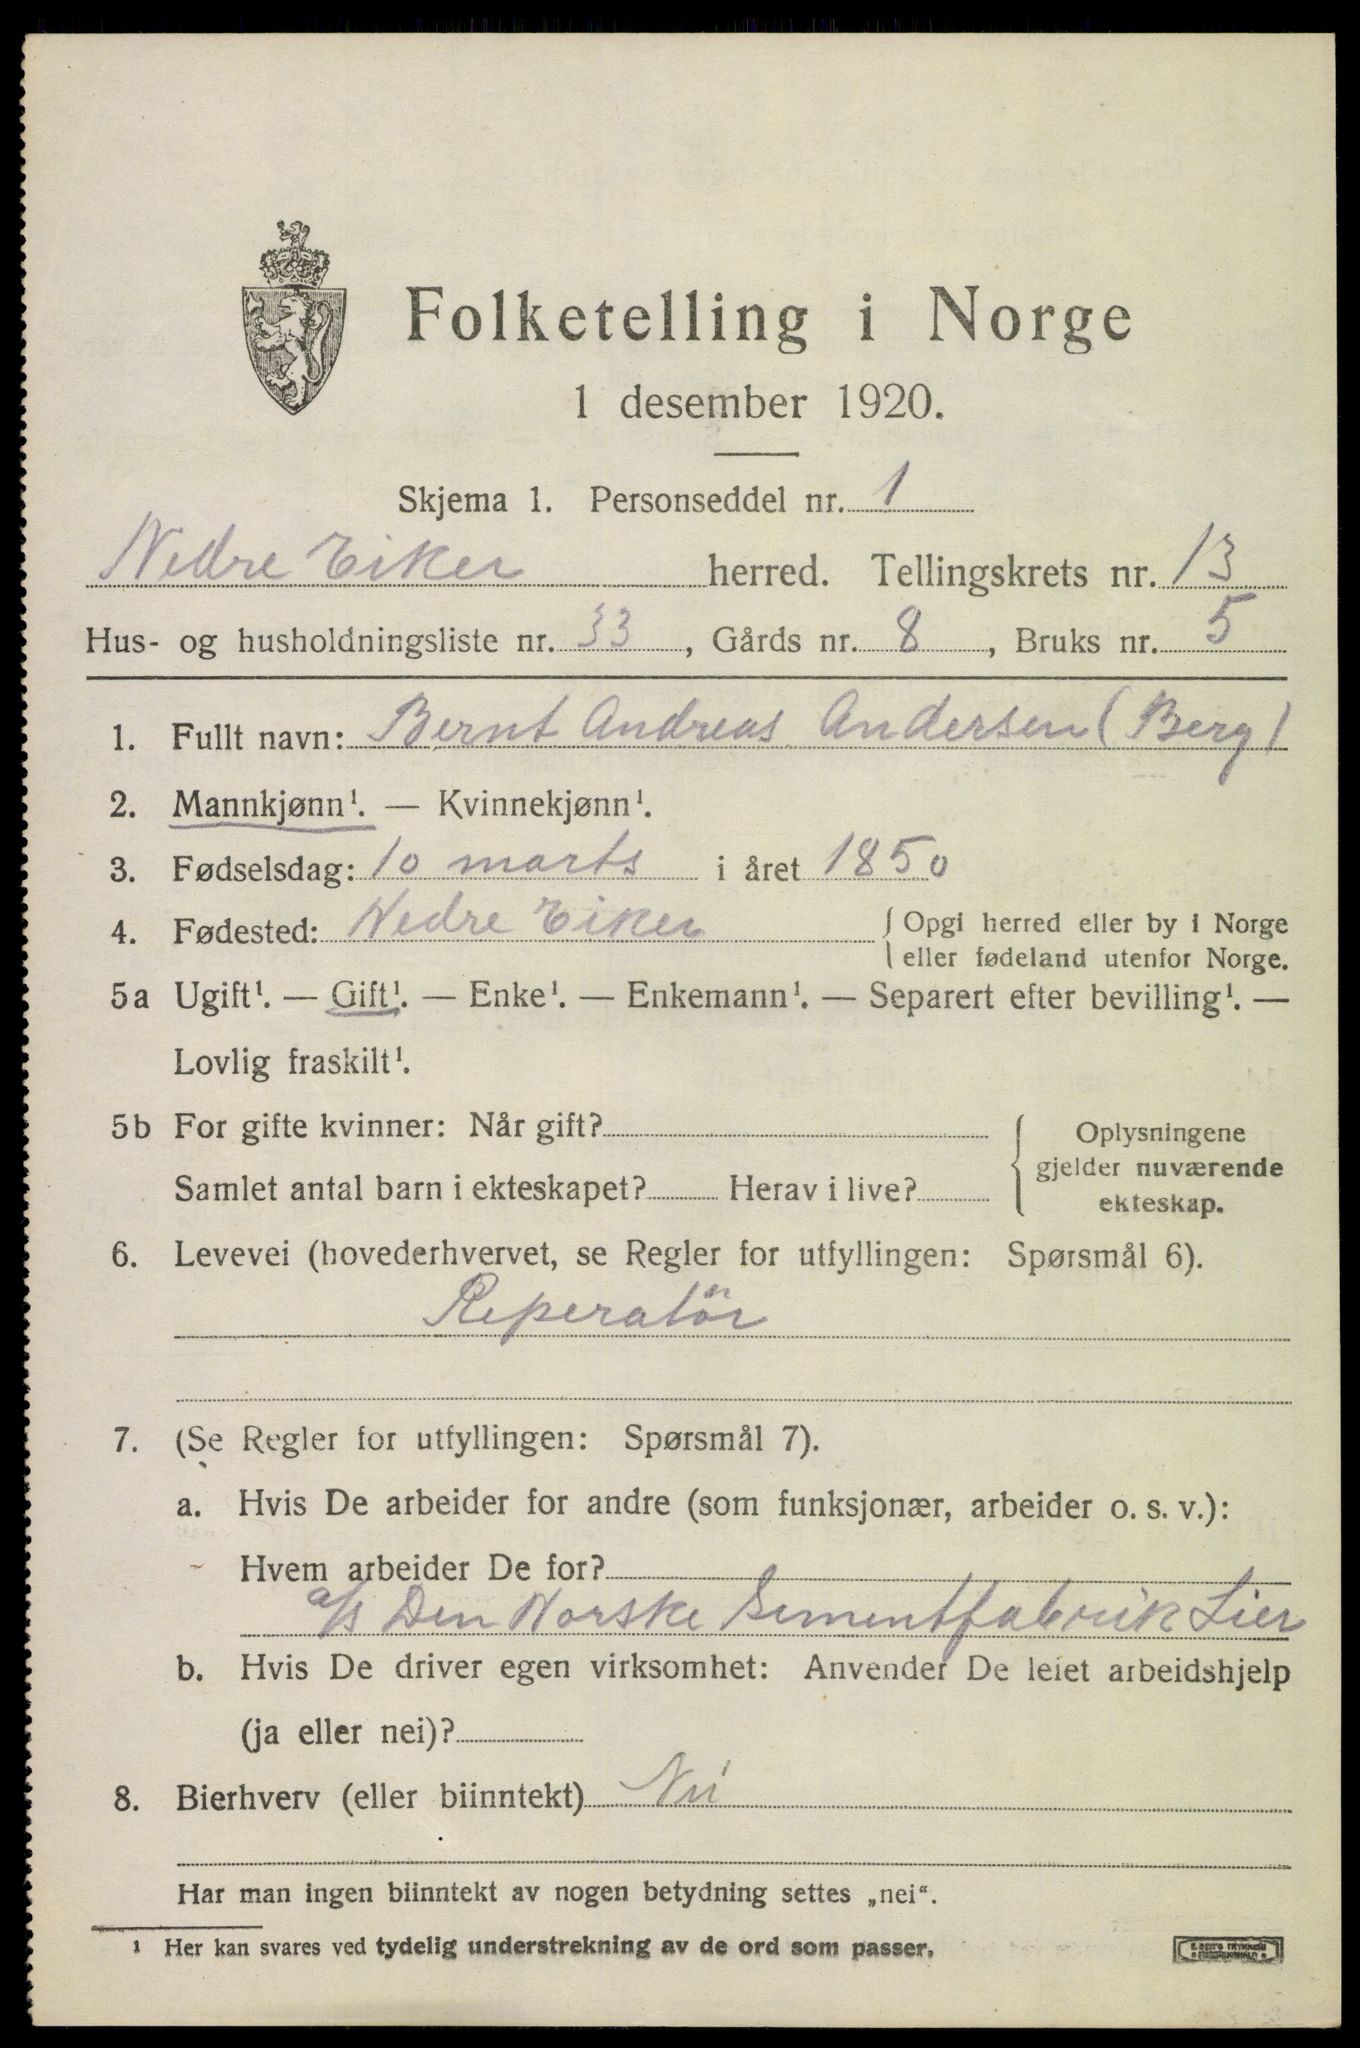 Folketelling i Norge
1 desember 1920.
Skjema 1. Personseddel nr. 1
Nedre Eiker herred. Tellingskrets nr. 13
Hus- og husholdningsliste nr. 33, Gårds nr. 8, Bruks nr. 5
1. Fullt navn: Bernt Andreas Andersen (Berg)
2. Mannkjønn¹. — Kvinnekjønn¹.
3. Fødselsdag: 10 marts i året 1850
4. Fødested: Nedre Eiker { Opgi herred eller by i Norge
eller fødeland utenfor Norge.
5a Ugift¹. — Gift¹. — Enke¹. — Enkemann¹. — Separert efter bevilling¹. —
Lovlig fraskilt¹.
5b For gifte kvinner: Når gift?
Samlet antal barn i ekteskapet? Herav i live?
Oplysningene
gjelder nuværende
ekteskap.
6. Levevei (hovederhvervet, se Regler for utfyllingen: Spørsmål 6).
Reperatör
7. (Se Regler for utfyllingen: Spørsmål 7).
a. Hvis De arbeider for andre (som funksjonær, arbeider o. s. v.):
Hvem arbeider De for?
a/s Den Norske Sementfabrik Lier
b. Hvis De driver egen virksomhet: Anvender De leiet arbeidshjelp
(ja eller nei)?
8. Bierhverv (eller biinntekt) Nei
Har man ingen biinntekt av nogen betydning settes „nei“.
¹ Her kan svares ved tydelig understrekning av de ord som passer.